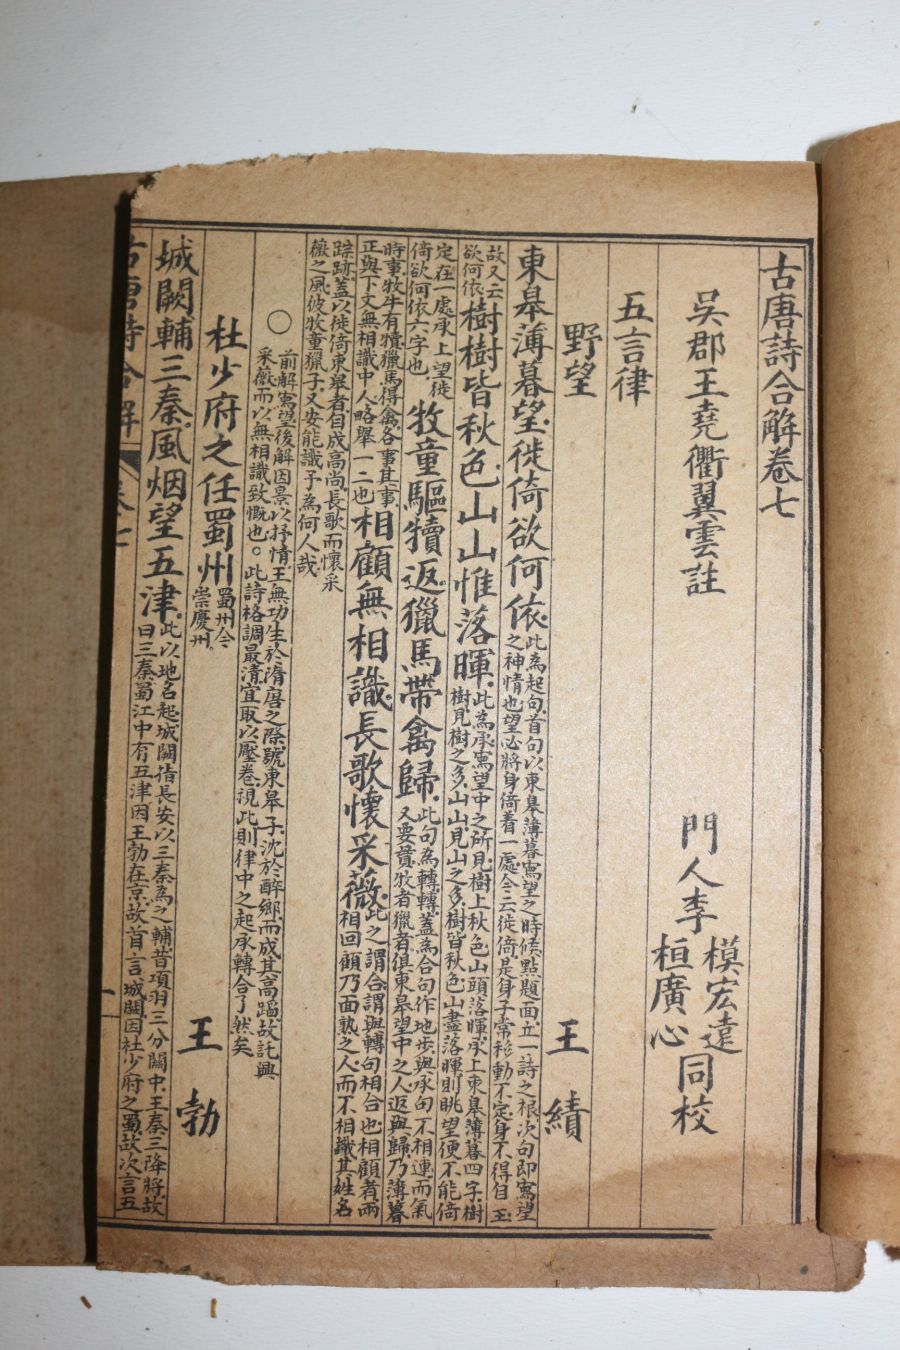 古唐詩合解卷七
吳郡王堯衢翼雲註
門人李
模宏遠
桓廣心
同校
五言律
野望
王績
東皋薄暮望徙倚欲何依
此為起句首句以東皋薄暮寫望之時候點題面立一詩之根次句即寫望
之神情也望必將身倚着一處今云徙倚是身子常移動不定身不得自主
故又云
欲何依
樹樹皆秋色山山惟落暉
此為承寫望中之所見樹上秋色山頭落暉承上東皋薄暮四字樹
樹見樹之多山山見山之多樹皆秋色山盡落暉則眺望便不能倚
定在一處承上望徙
倚欲何依六字也
牧童驅犢返獵馬帶禽歸
此句為轉轉蓋為合句作地步與承句不相連而氣
又要貫牧者獵者俱東皋望中之人返與歸乃薄暮
時事牧牛有犢獵馬得禽各事其事
正與下文無相識中人略舉一二也
相顧無相識長歌懷采薇
此之謂合謂與轉句相合也相顧者兩
相回顧乃面熟之人而不相識其姓名
踪跡蓋以徙倚東皋者自成高尚長歌而懷采
薇之風彼牧童獵子又安能識予為何人哉
○
前解寫望後解因景以抒情王無功生於隋唐之際號東皋子沈於醉鄉而成其高蹈故託興
采薇而以無相識致慨也。此詩格調最清宜取以壓卷視此則律中之起承轉合了然矣
杜少府之任蜀州
蜀州今
崇慶州
王勃
城闕輔三秦風烟望五津
此以地名起城闕指長安以三秦為之輔昔項羽三分關中王秦三降將故
曰三秦蜀江中有五津因王勃在京故首言城闕因杜少府之蜀故次言五
古唐詩合解
卷七
一